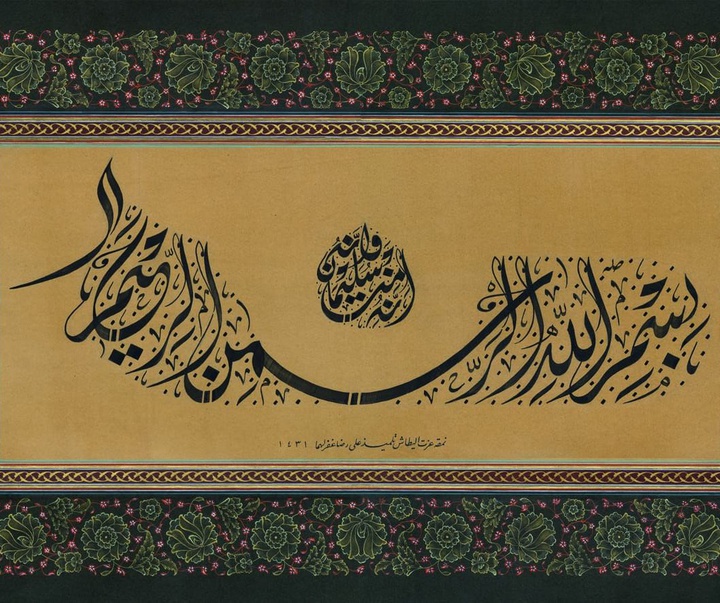 إنه من سليمان وإنه
بسم الله الرحمن الرحيم
نمقه عزت تلميذ على رضا غفر لهما ١٤٣١